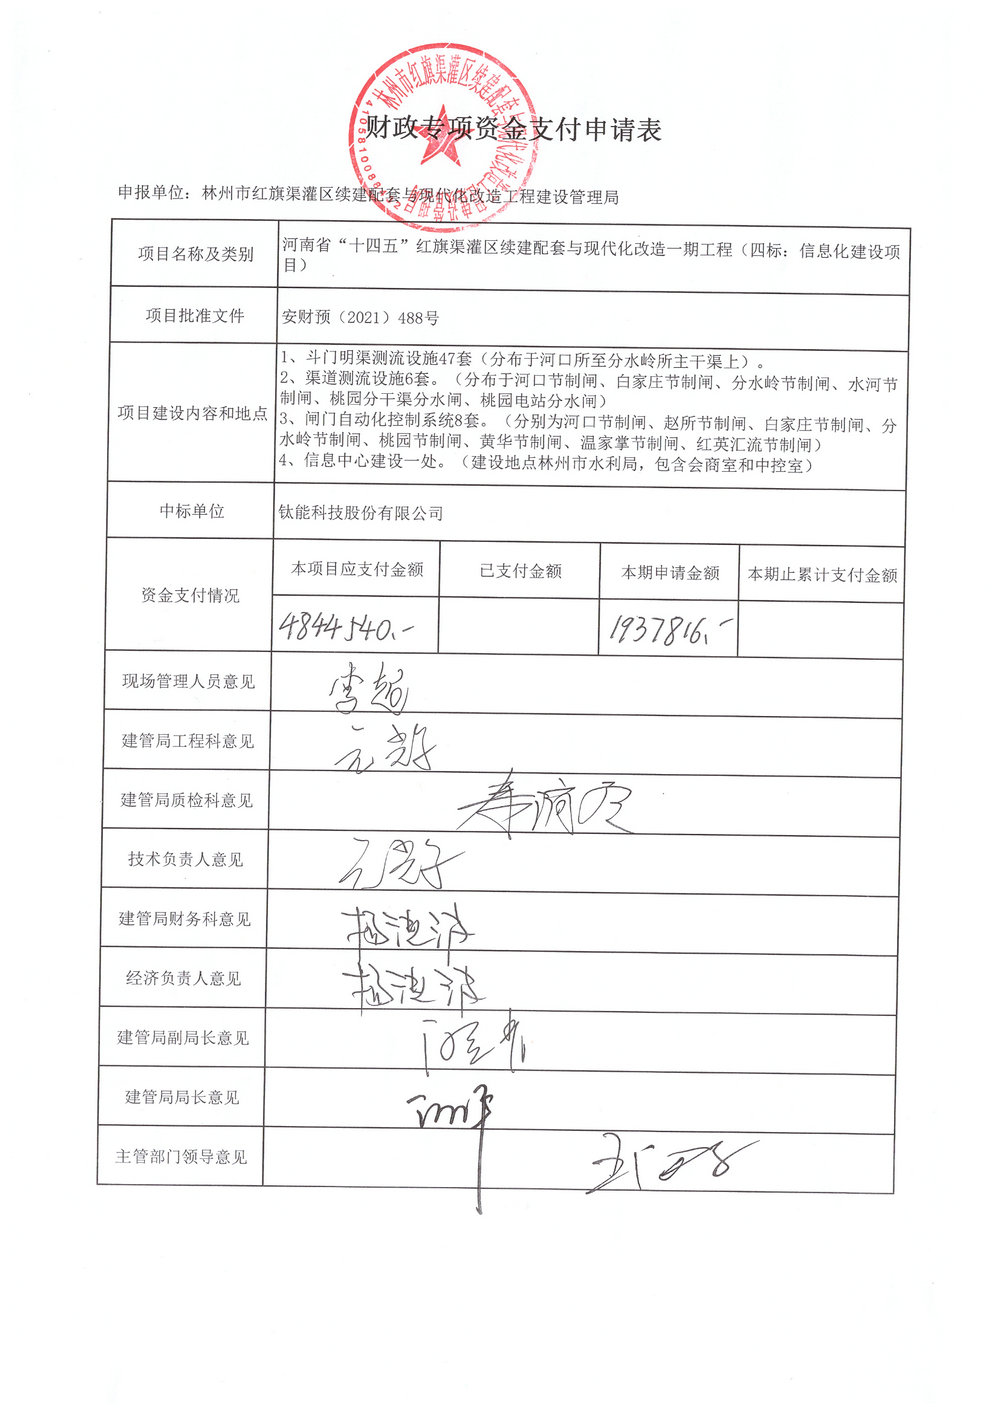 财政专项资金支付申请表
申报单位：林州市红旗渠灌区续建配套与现代化改造工程建设管理局
项目名称及类别
河南省“十四五”红旗渠灌区续建配套与现代化改造一期工程（四标：信息化建设项
目）
项目批准文件
安财预（2021）488号
项目建设内容和地点
1、斗门明渠测流设施47套（分布于河口所至分水岭所主干渠上）。
2、渠道测流设施6套。（分布于河口节制闸、白家庄节制闸、分水岭节制闸、水河节
制闸、桃园分干渠分水闸、桃园电站分水闸）
3、闸门自动化控制系统8套。（分别为河口节制闸、赵所节制闸、白家庄节制闸、分
水岭节制闸、桃园节制闸、黄华节制闸、温家掌节制闸、红英汇流节制闸）
4、信息中心建设一处。（建设地点林州市水利局，包含会商室和中控室）
中标单位
钛能科技股份有限公司
资金支付情况
本项目应支付金额 已支付金额 本期申请金额 本期止累计支付金额
4844540.- 1937816.-
现场管理人员意见
李超
建管局工程科意见
建管局质检科意见
技术负责人意见
建管局财务科意见
经济负责人意见
建管局副局长意见
建管局局长意见
主管部门领导意见